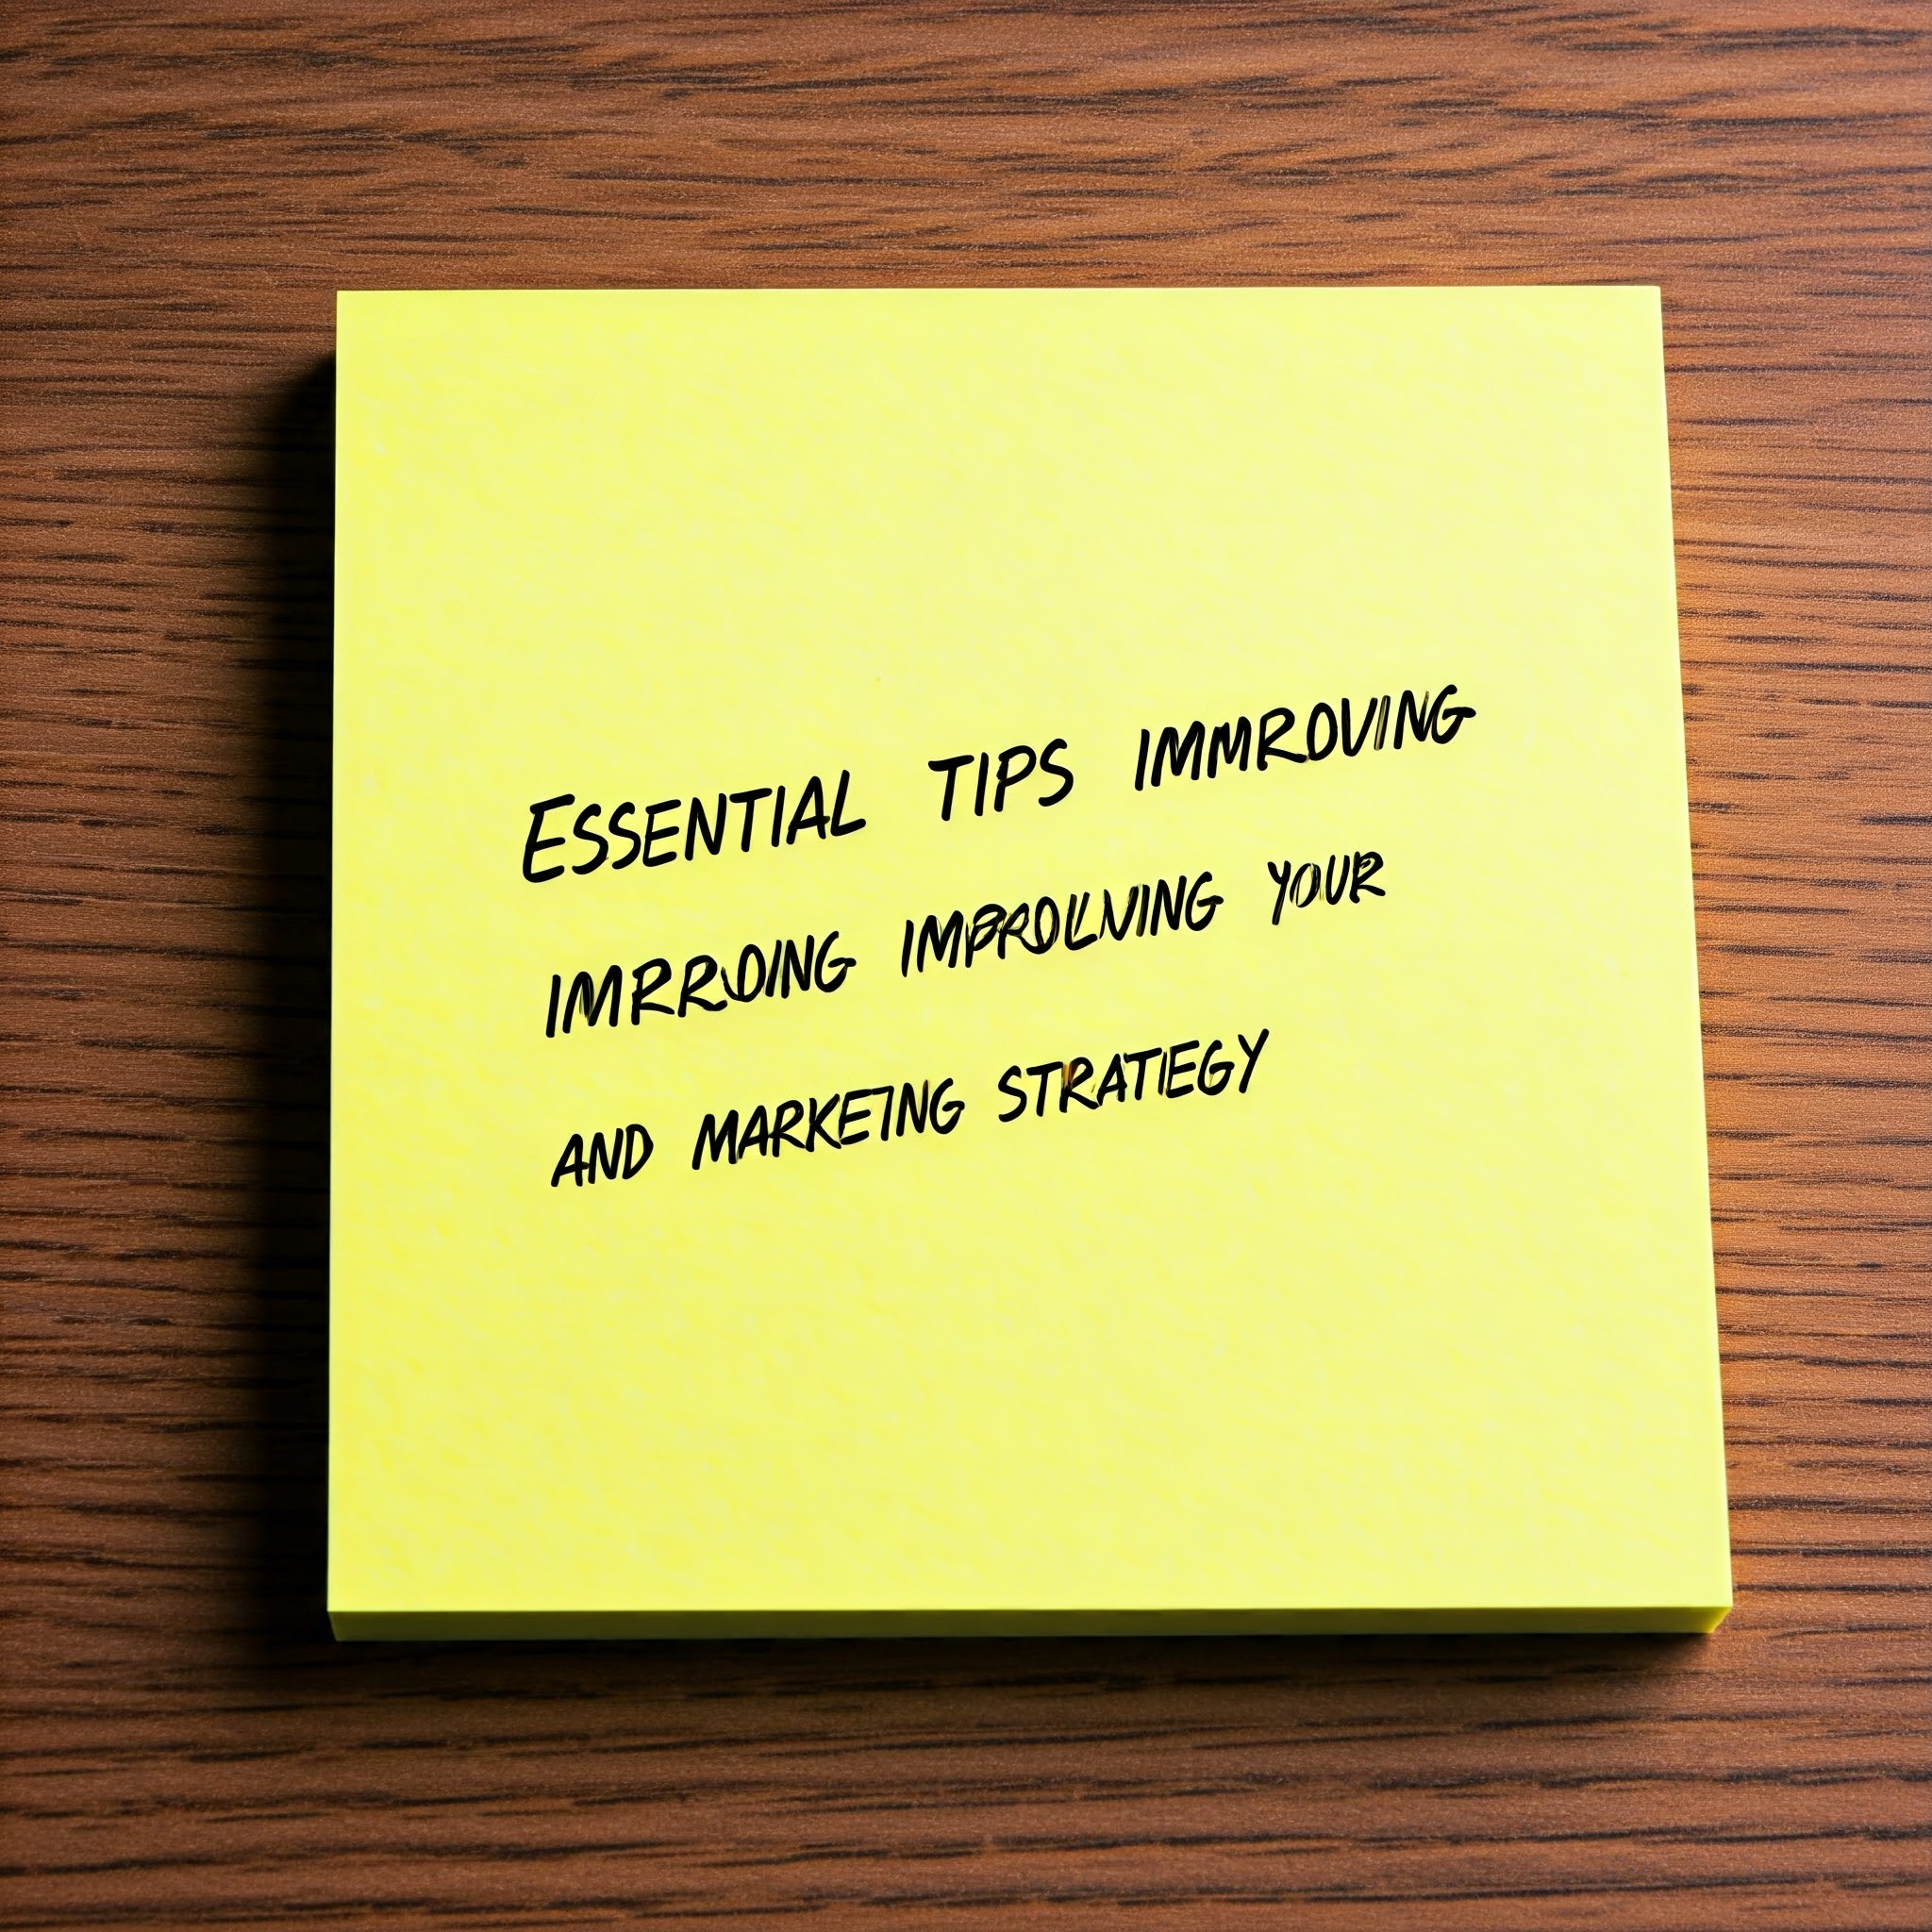 ESSENTIAL TIPS IMMROVING
IMRROING IMPROLVING YOUR
AND MARKETNG STRATIEGY